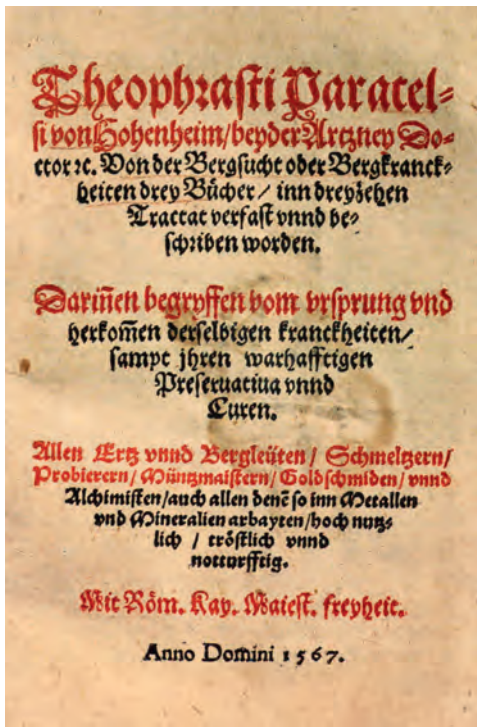 Theophrasti Paracel=
si von Hohenheim/beyder Artzney Do=
ctor ꝛc. Von der Bergsucht oder Bergkranck=
heiten drey Bücher/ inn dreyzehen
Tractat verfast vnnd be=
schriben worden.
Dariñen begryffen vom vrsprung vnd
herkom̃en derselbigen kranckheiten/
sampt jhren warhafftigen
Preseruatiua vnnd
Curen.
Allen Ertz vnnd Bergleüten/ Schmeltzern/
Probierern/ Müntzmaistern/ Goldschmiden/ vnnd
Alchimisten/auch allen denẽ so inn Metallen
vnd Mineralien arbayten/hoch nutz=
lich / tröstlich vnnd
notturfftig.
Mit Röm. Kay. Maiest. freyheit.
Anno Domini 1567.